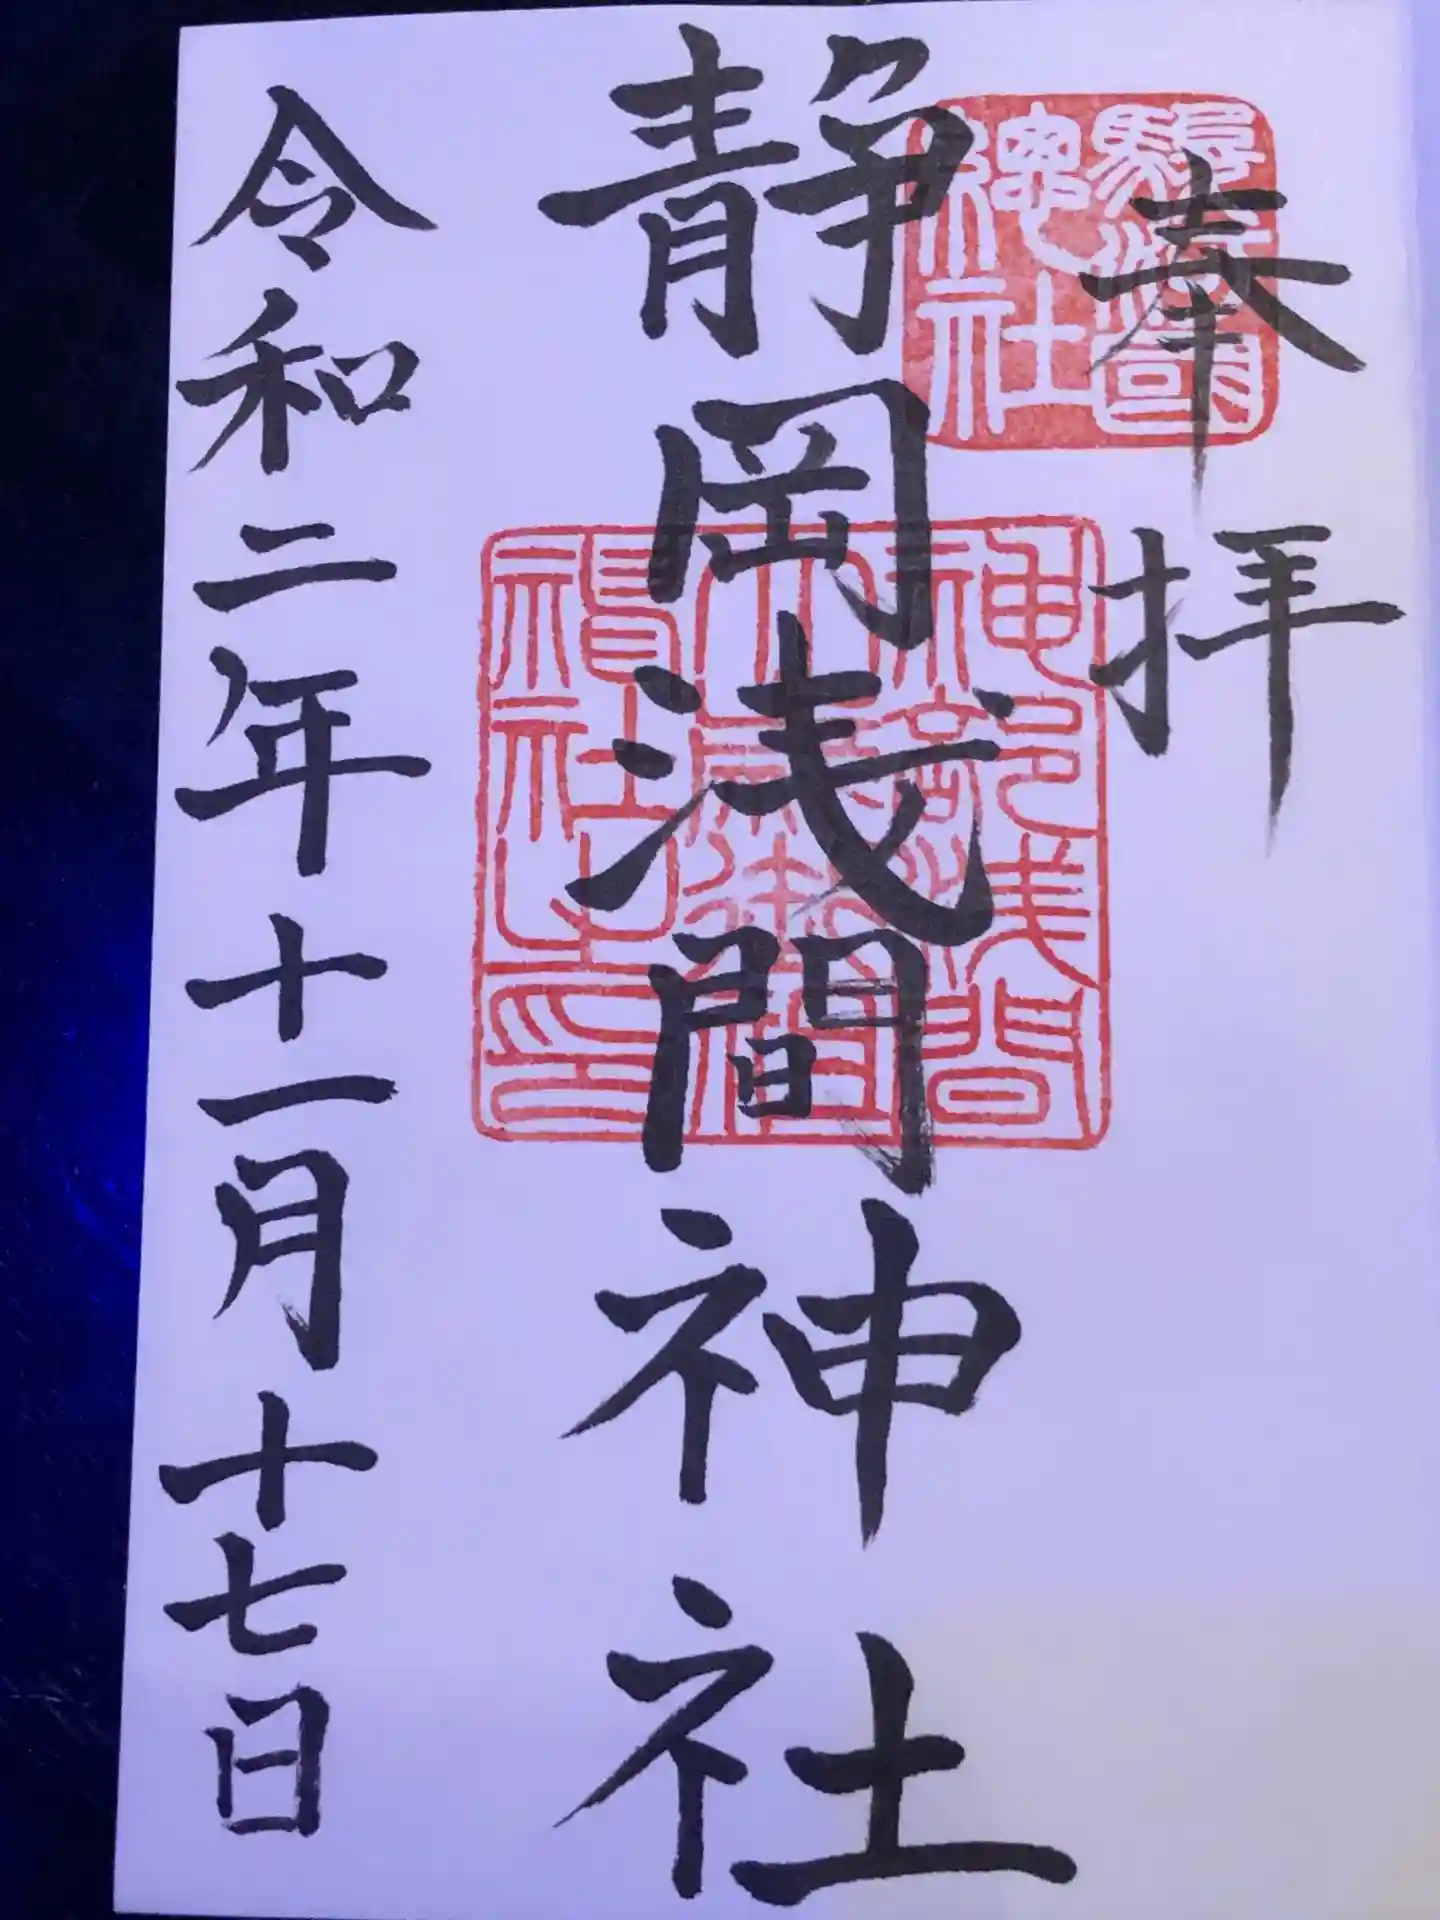 奉拝
駿河國
總社
静岡浅間神社
神部浅間
大歳御祖
神社之印
令和二年十一月十七日